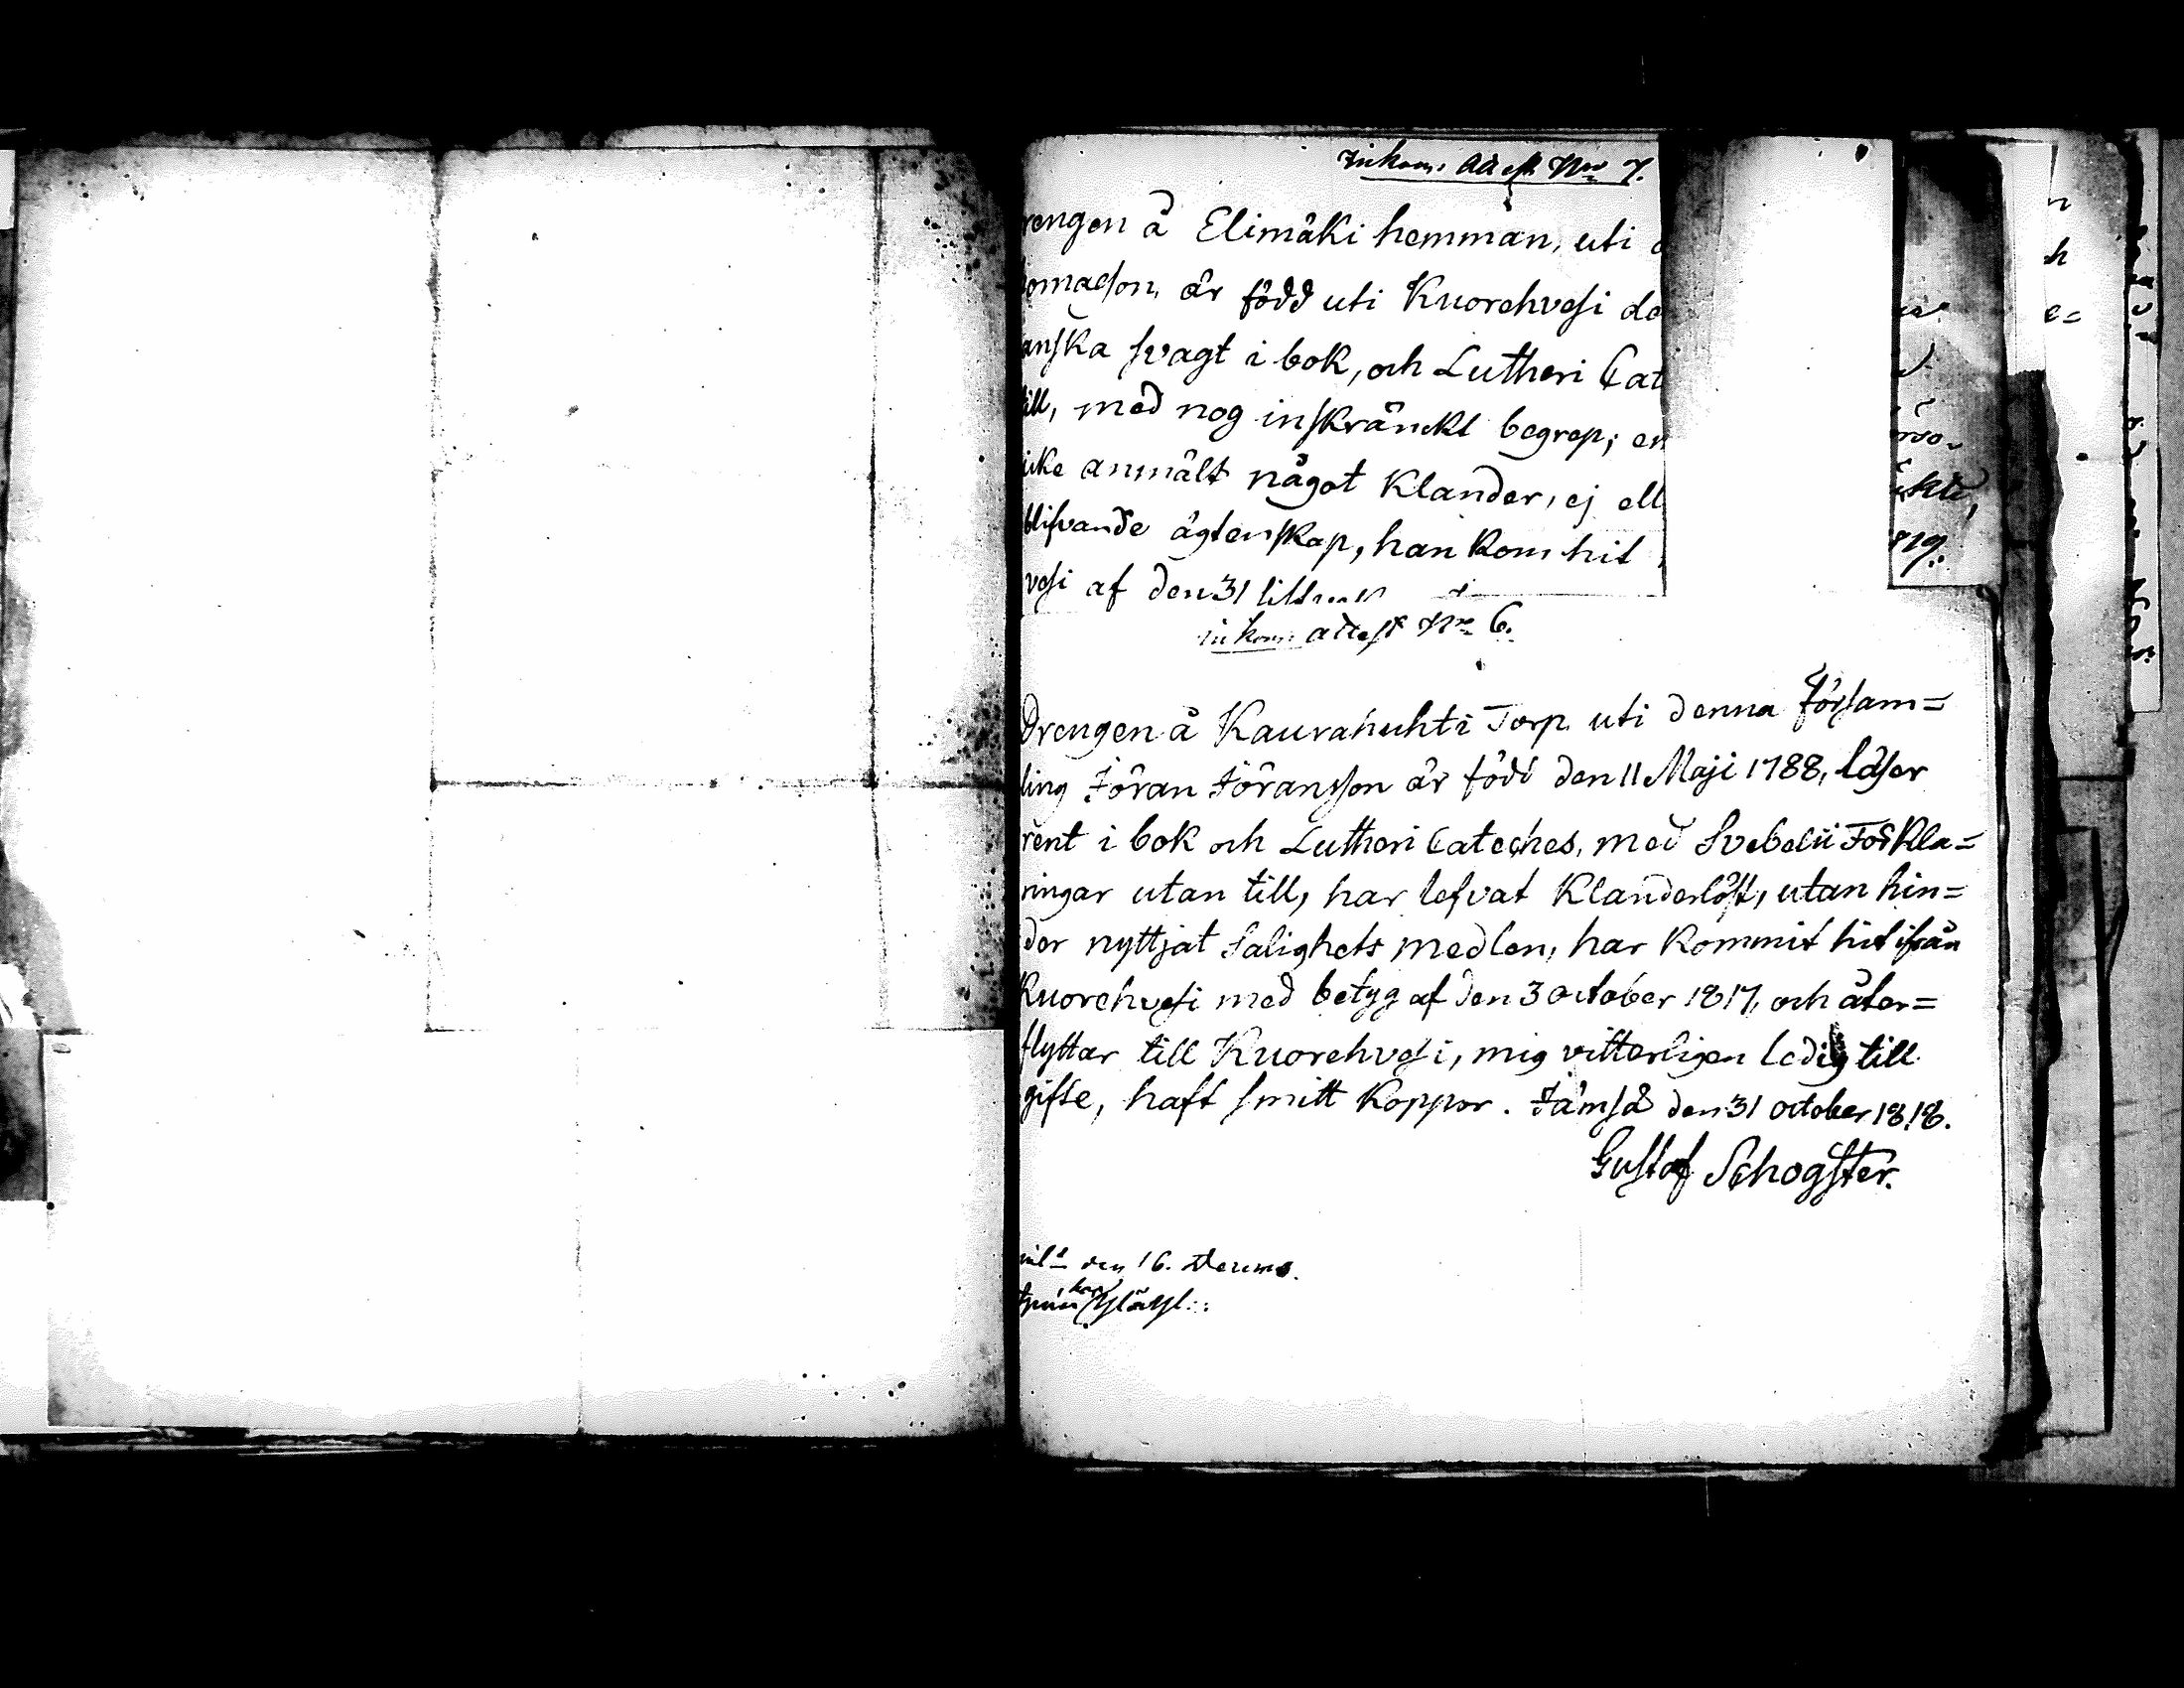 Inkom. Attest No 7.
rengen å Elimäki hemman, uti d
omasson, är född uti Kuorehvesi de
anska svagt i bok, och Lutheri Cat
till, med nog inskränckt begrep; en
icke anmält något Klander, ej ell
blifvande ägtenskap, han Kom hit
vesi af den 31
inkom attest No 6.
Drengen å Kaurahuhti Torp uti denna Försam=
ling Jöran Jöransson är född den 11 Maji 1788, läser
rent i bok och Lutheri Cateches, med Svebelii Förkla=
ringar utan till, har lefvat Klanderlöst, utan hin=
der nyttjat Salighets medlen, har Kommit hit ifrån
Kuorehvesi med betyg af den 3 October 1817, och åter=
flyttar till Kuorehvesi, mig vitterligen ledig till
gifte, haft smitt Koppor. Jämsä den 31 October 1818.
Gustaf Schogster.
den 16.
819.